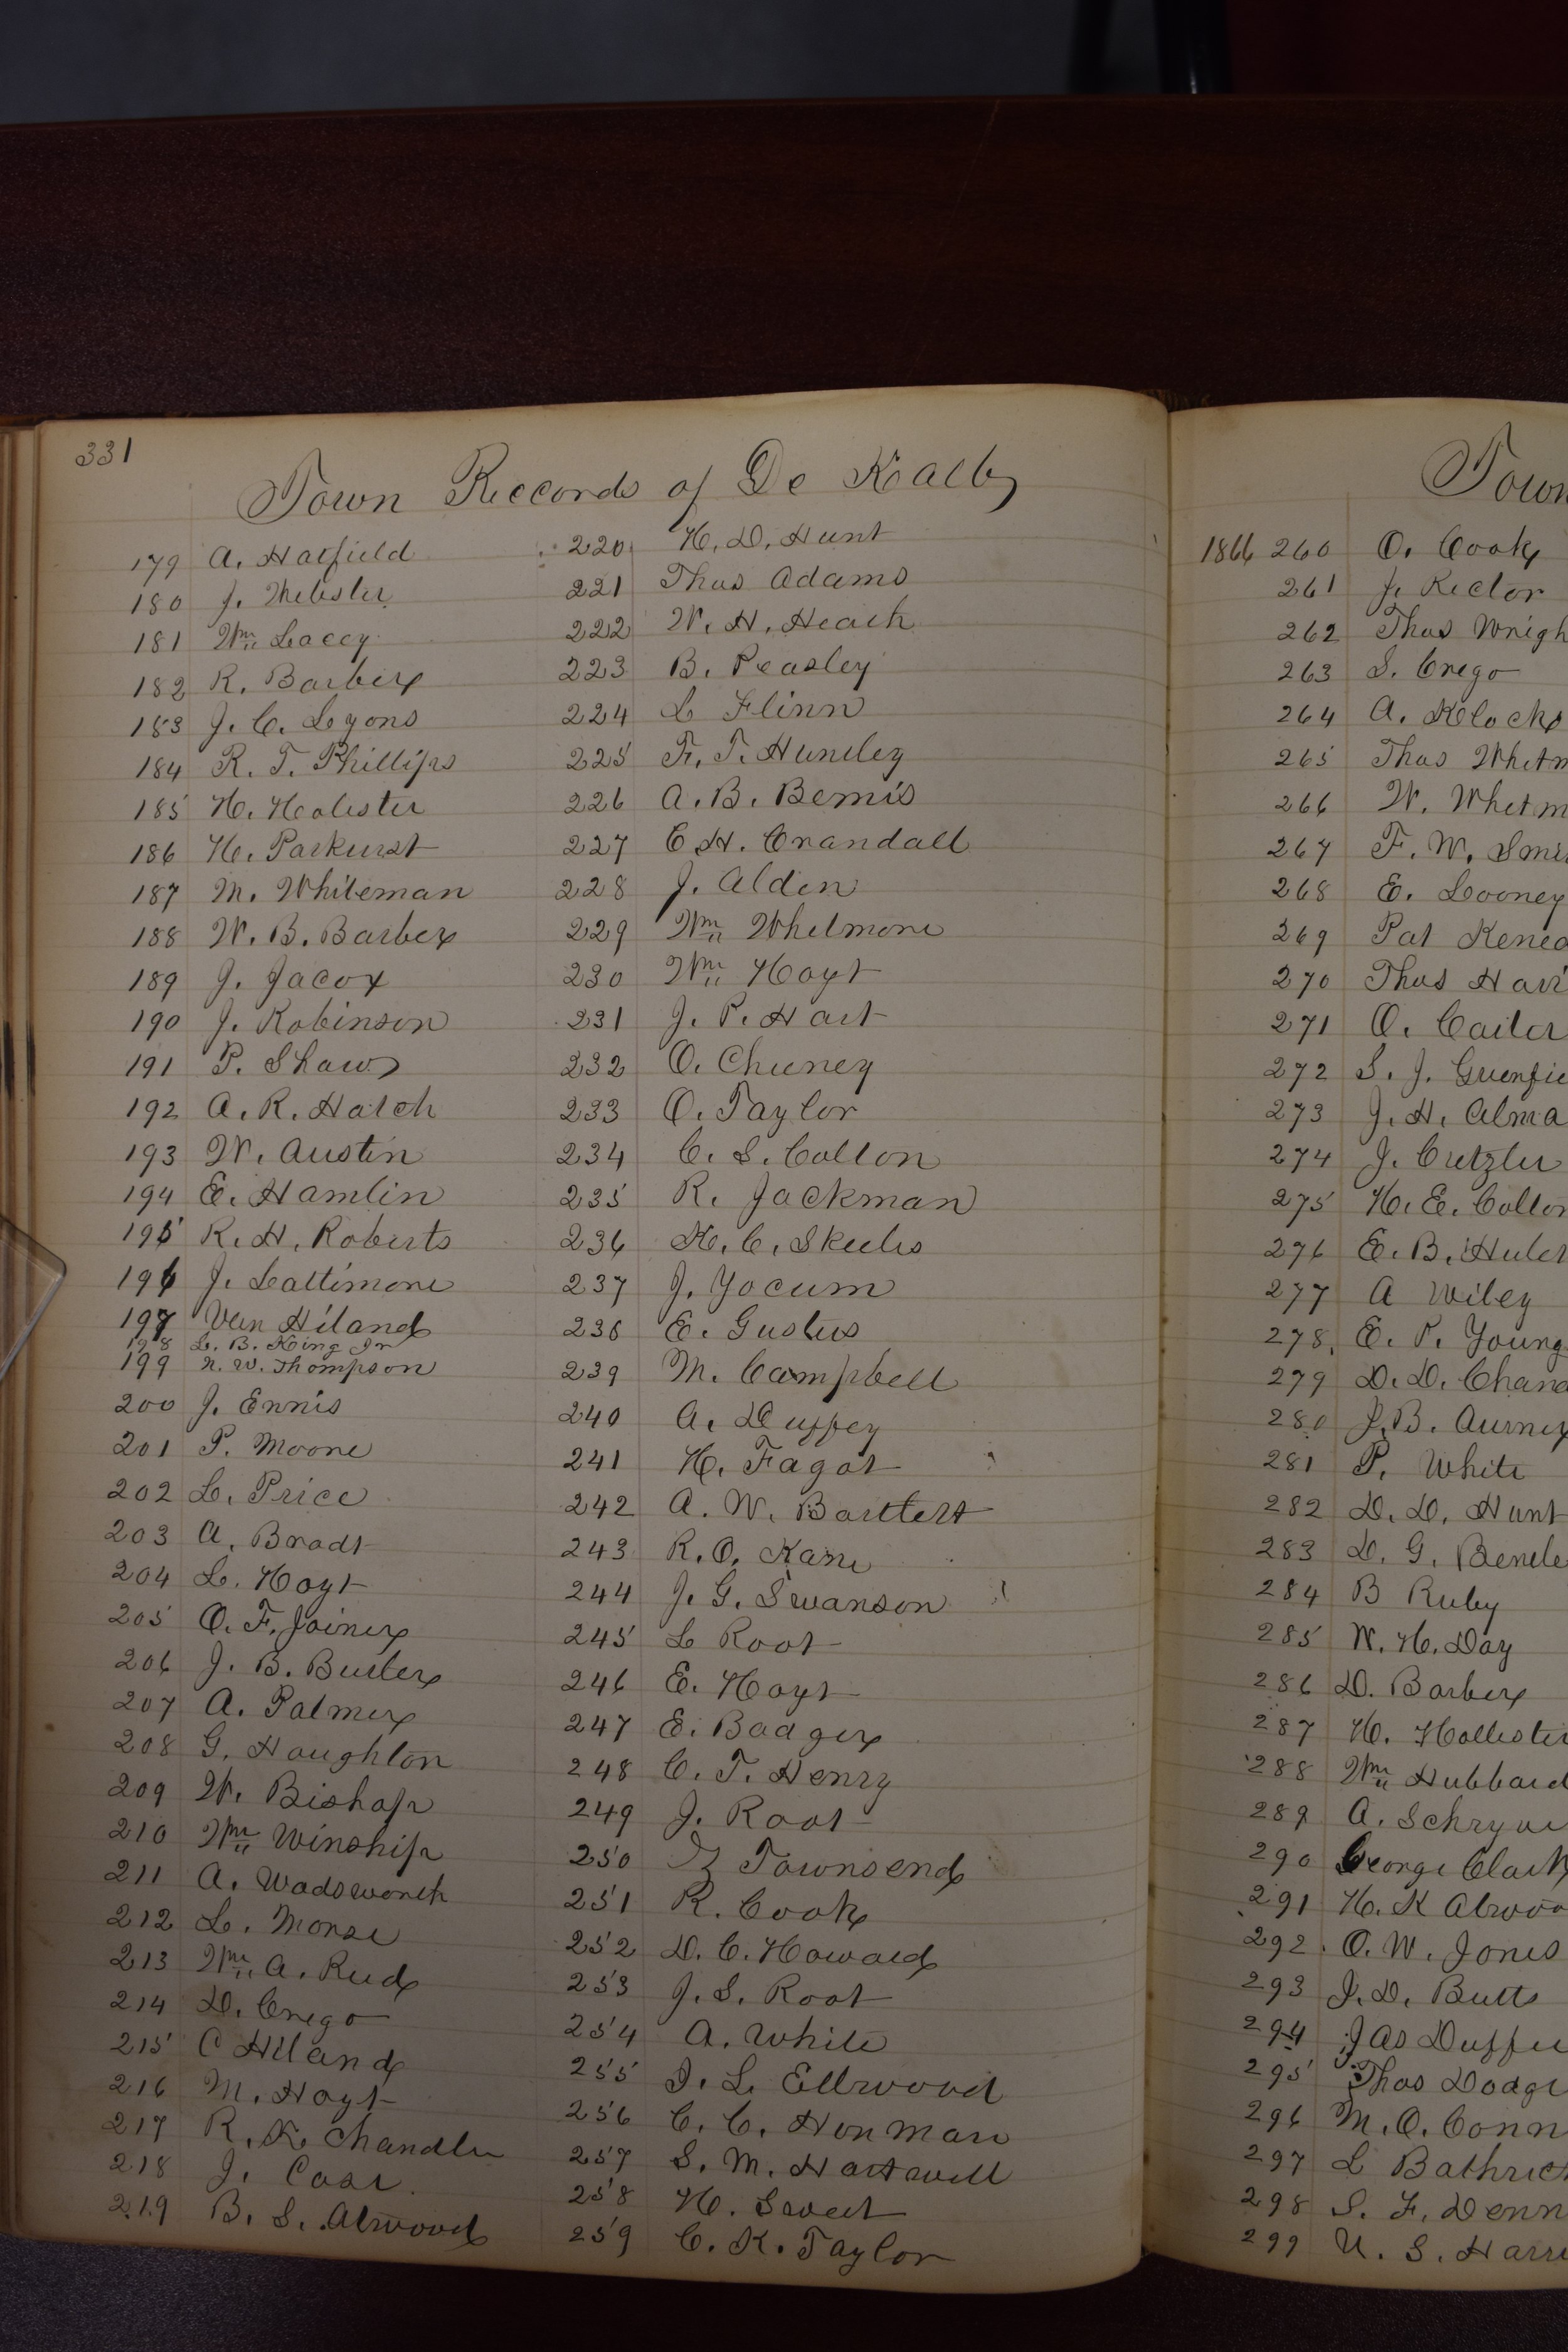 331
Town Records of De Kalb
179 A. Hatfield
180 J. Webster
181 Wm Lacey
182 R. Barber
183 J. C. Lyons
184 R. T. Phillips
185 H. Holister
186 H. Parkurst
187 M. Whiteman
188 W. B. Barber
189 J. Jacox
190 J. Robinson
191 P. Shaw
192 A. R. Hatch
193 W. Austin
194 E. Hamlin
195 R. H. Roberts
196 J. Lattimore
197 Van Hiland
198 L. B. King Jr
199 N. W. Thompson
200 J. Ennis
201 P. Moore
202 L. Price
203 A. Bradt
204 L. Hoyt
205 O. F. Joiner
206 J. B. Butler
207 A. Palmer
208 G. Haughton
209 W. Bishop
210 Wm Winship
211 A. Wadsworth
212 L. Morse
213 Wm A. Rud
214 D. Crego
215 C Hiland
216 M. Hoyt
217 R. K. Chandler
218 J. Case
219 B. S. Atwood
220 H. D. Hunt
221 Thos Adams
222 W. H. Heath
223 B. Peasley
224 L Flinn
225 F. T. Huntley
226 A. B. Bemis
227 C H. Crandall
228 J. Alden
229 Wm Whetmore
230 Wm Hoyt
231 J. P. Hart
232 O. Cheney
233 O. Taylor
234 C. S. Colton
235 R. Jackman
236 H. C. Skeels
237 J. Yocum
238 E. Gustus
239 M. Campbell
240 A. Duffey
241 H. Fagot
242 A. W. Bartlett
243 R. O. Kane
244 J. G. Swanson
245 L Root
246 E. Hoyt
247 E. Badger
248 C. T. Henry
249 J. Root
250 Z Townsend
251 R. Cook
252 D. C. Howard
253 J. S. Root
254 A. White
255 I. L. Ellwood
256 C. C. Honman
257 S. M. Hartwell
258 H. Sweet
259 C. K. Taylor
Town
1866 260 O. Cook
261 J. Rector
262 Thos Wrigh
263 S. Crego
264 A. Klocke
265 Thos Whetm
266 W. Whetm
267 F. W. Smi
268 E. Looney
269 Pat Kened
270 Thos Harr
271 O. Carter
272 S. J. Greenfie
273 J. H. Alma
274 J. Cretzler
275 H. E. Colton
276 E. B. Huler
277 A Wiley
278 E. P. Young
279 D. D. Chand
280 J. B. Aurner
281 P. White
282 D. D. Hunt
283 D. G. Benele
284 B Ruby
285 W. H. Day
286 D. Barber
287 H. Hollister
288 Wm Hubbard
289 A. Schryve
290 George Clark
291 H. K Atwoo
292 O. W. Jones
293 J. D. Butts
294 Jas Duffe
295 Thos Dodge
296 M. O. Conn
297 L Bathric
298 S. F. Denn
299 U. S. Harri